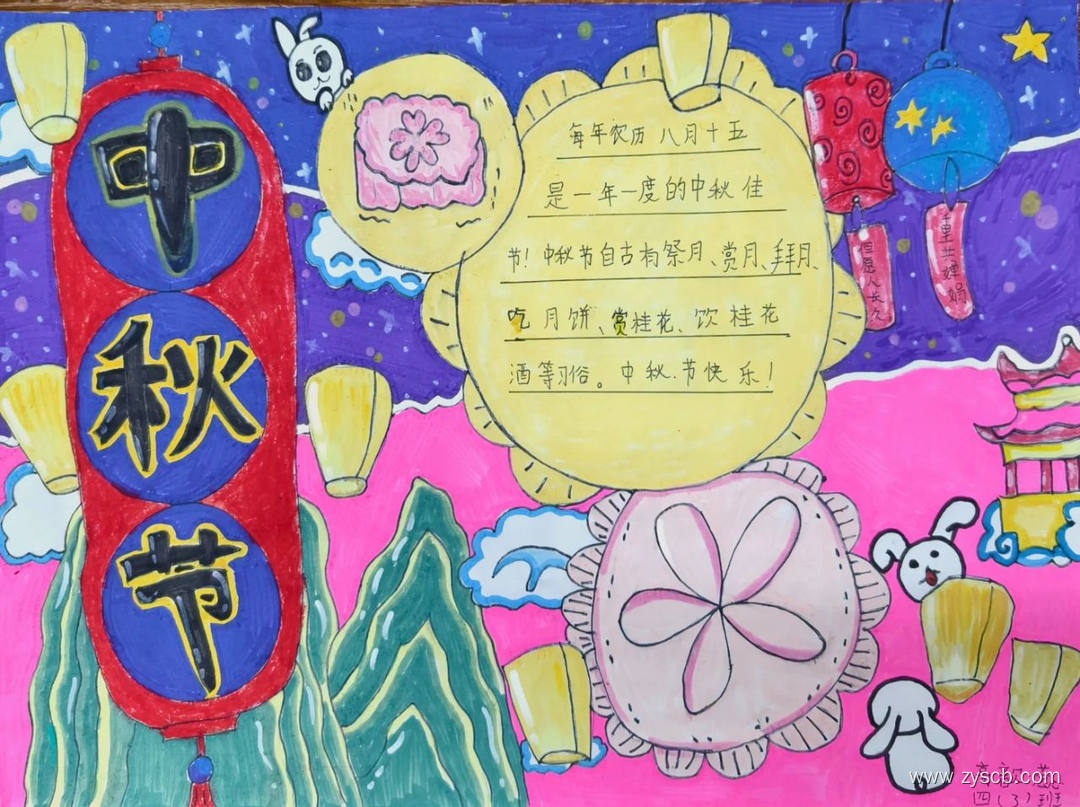 中
秋
节
每年农历八月十五
是一年一度的中秋佳
节!中秋节自古有祭月、赏月、拜月、
吃月饼、赏桂花、饮桂花
酒等习俗。中秋.节快乐!
但愿人长久
重共婵娟
www.zyscb.com
四(3)班